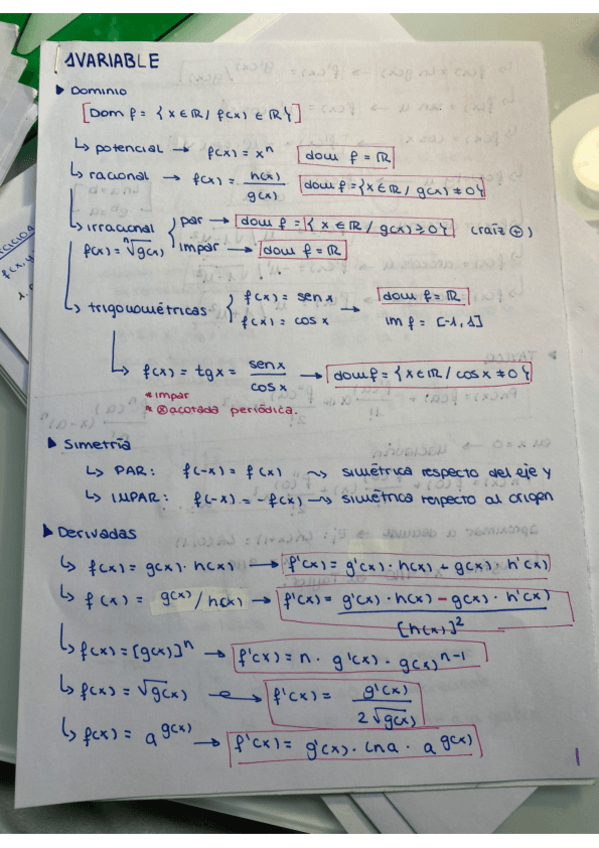 1VARIABLE
▸ Dominio
[Dom f = { x ∈ ℝ / f(x) ∈ ℝ }]
↳ potencial → f(x) = xⁿ dom f = ℝ
↳ racional → f(x) = h(x)/g(x) dom f = {x ∈ ℝ / g(x) ≠ 0}
↳ irracional { par → dom f = { x ∈ ℝ / g(x) ≥ 0} (raíz ⊕)
f(x) = ⁿ√g(x) impar → dom f = ℝ
↳ trigonométricas { f(x) = sen x → dom f = ℝ
f(x) = cos x im f = [-1, 1]
↳ f(x) = tg x = sen x / cos x → dom f = { x ∈ ℝ / cos x ≠ 0 }
* impar
* ⊗ acotada periódica.
▸ Simetría
↳ PAR: f(-x) = f(x) ⇝ simétrica respecto del eje y
↳ IMPAR: f(-x) = -f(x) ⇝ simétrica respecto al origen
▸ Derivadas
↳ f(x) = g(x) · h(x) → f'(x) = g'(x) · h(x) + g(x) · h'(x)
↳ f(x) = g(x) / h(x) → f'(x) = g'(x) · h(x) - g(x) · h'(x) / [h(x)]²
↳ f(x) = [g(x)]ⁿ → f'(x) = n · g'(x) · g(x)ⁿ⁻¹
↳ f(x) = √g(x) → f'(x) = g'(x) / 2√g(x)
↳ f(x) = a^g(x) → f'(x) = g'(x) · ln a · a^g(x)
1